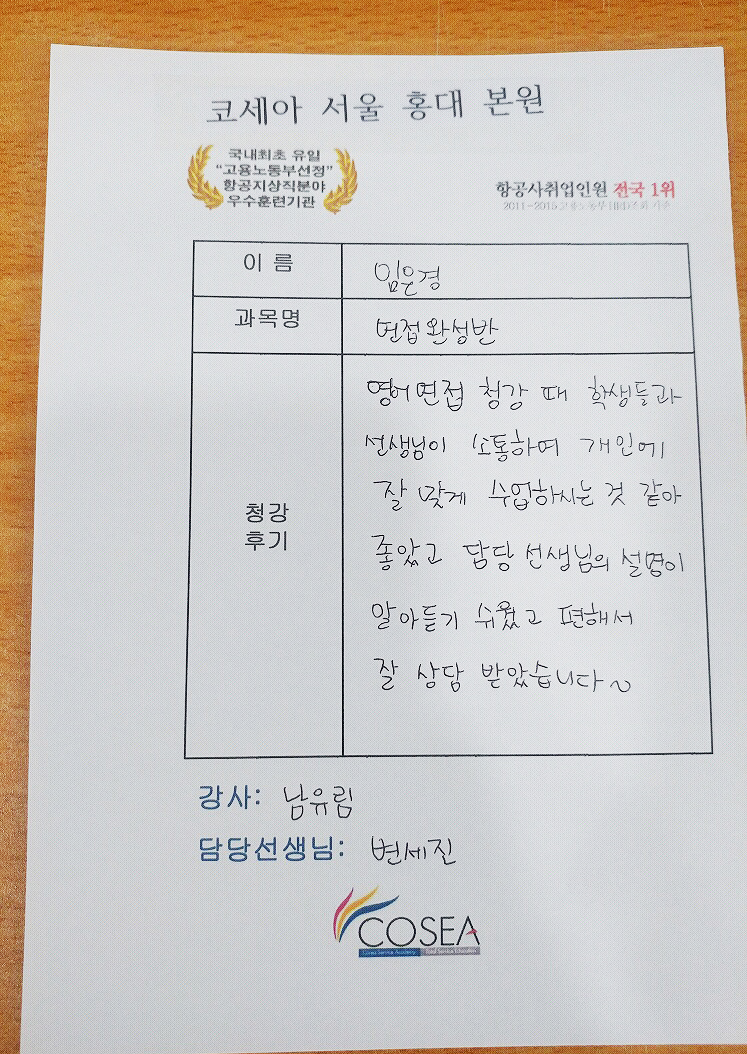 코세아 서울 홍대 본원
국내최초 유일
"고용노동부선정"
항공지상직분야
우수훈련기관
항공사취업인원 전국 1위
2011~2015
이 름
임은경
과목명
면접완성반
청강
후기
영어면접 청강 때 학생들과
선생님이 소통하며 개인에
잘 맞게 수업하시는 것 같아
좋았고 담당 선생님의 설명이
알아듣기 쉬웠고 편해서
잘 상담 받았습니다~
강사: 남유림
담당선생님: 변세진
COSEA